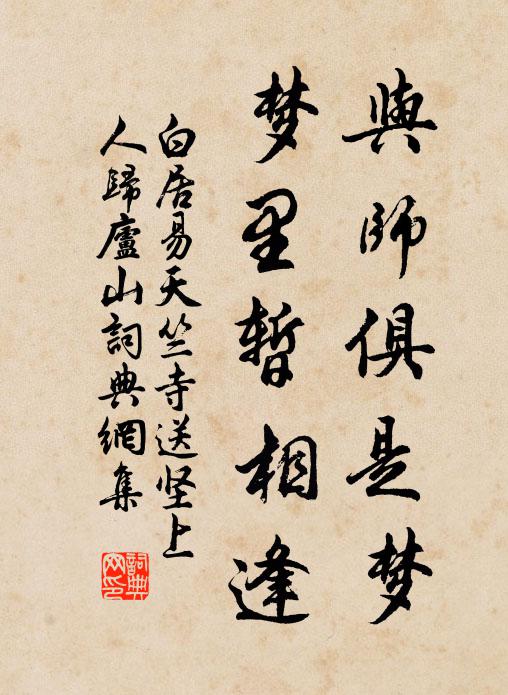 與師俱是梦
梦里暫相逢
白居易天竺寺送坚上
人歸廬山詞典網集
詞典
网印